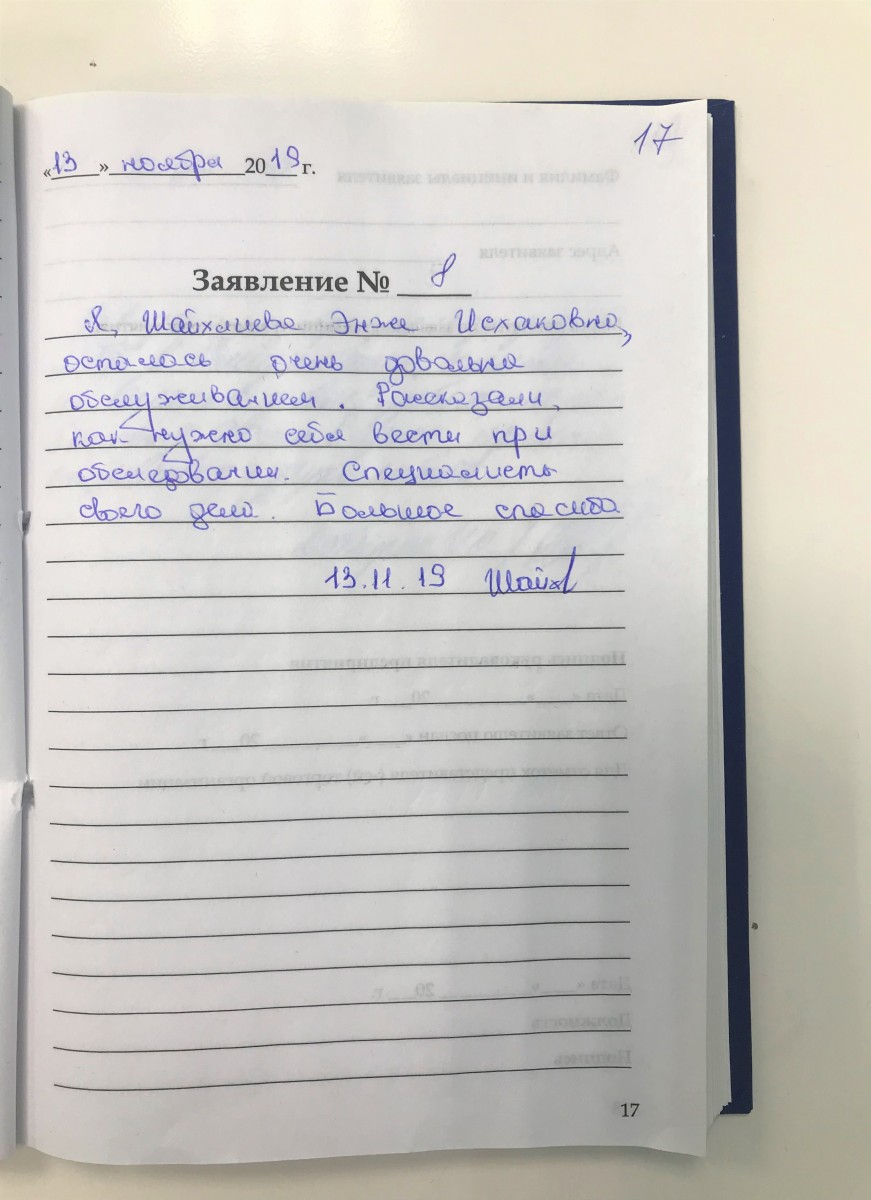 17
«13» ноября 2019 г.
Заявление № 8
Я, Шайхлиева Энже Исхаковна,
осталась очень довольна
обслуживанием. Рассказали,
как нужно себя вести при
обследовании. Специалисты
своего дела. Большое спасибо
13.11.19 Шайх
17